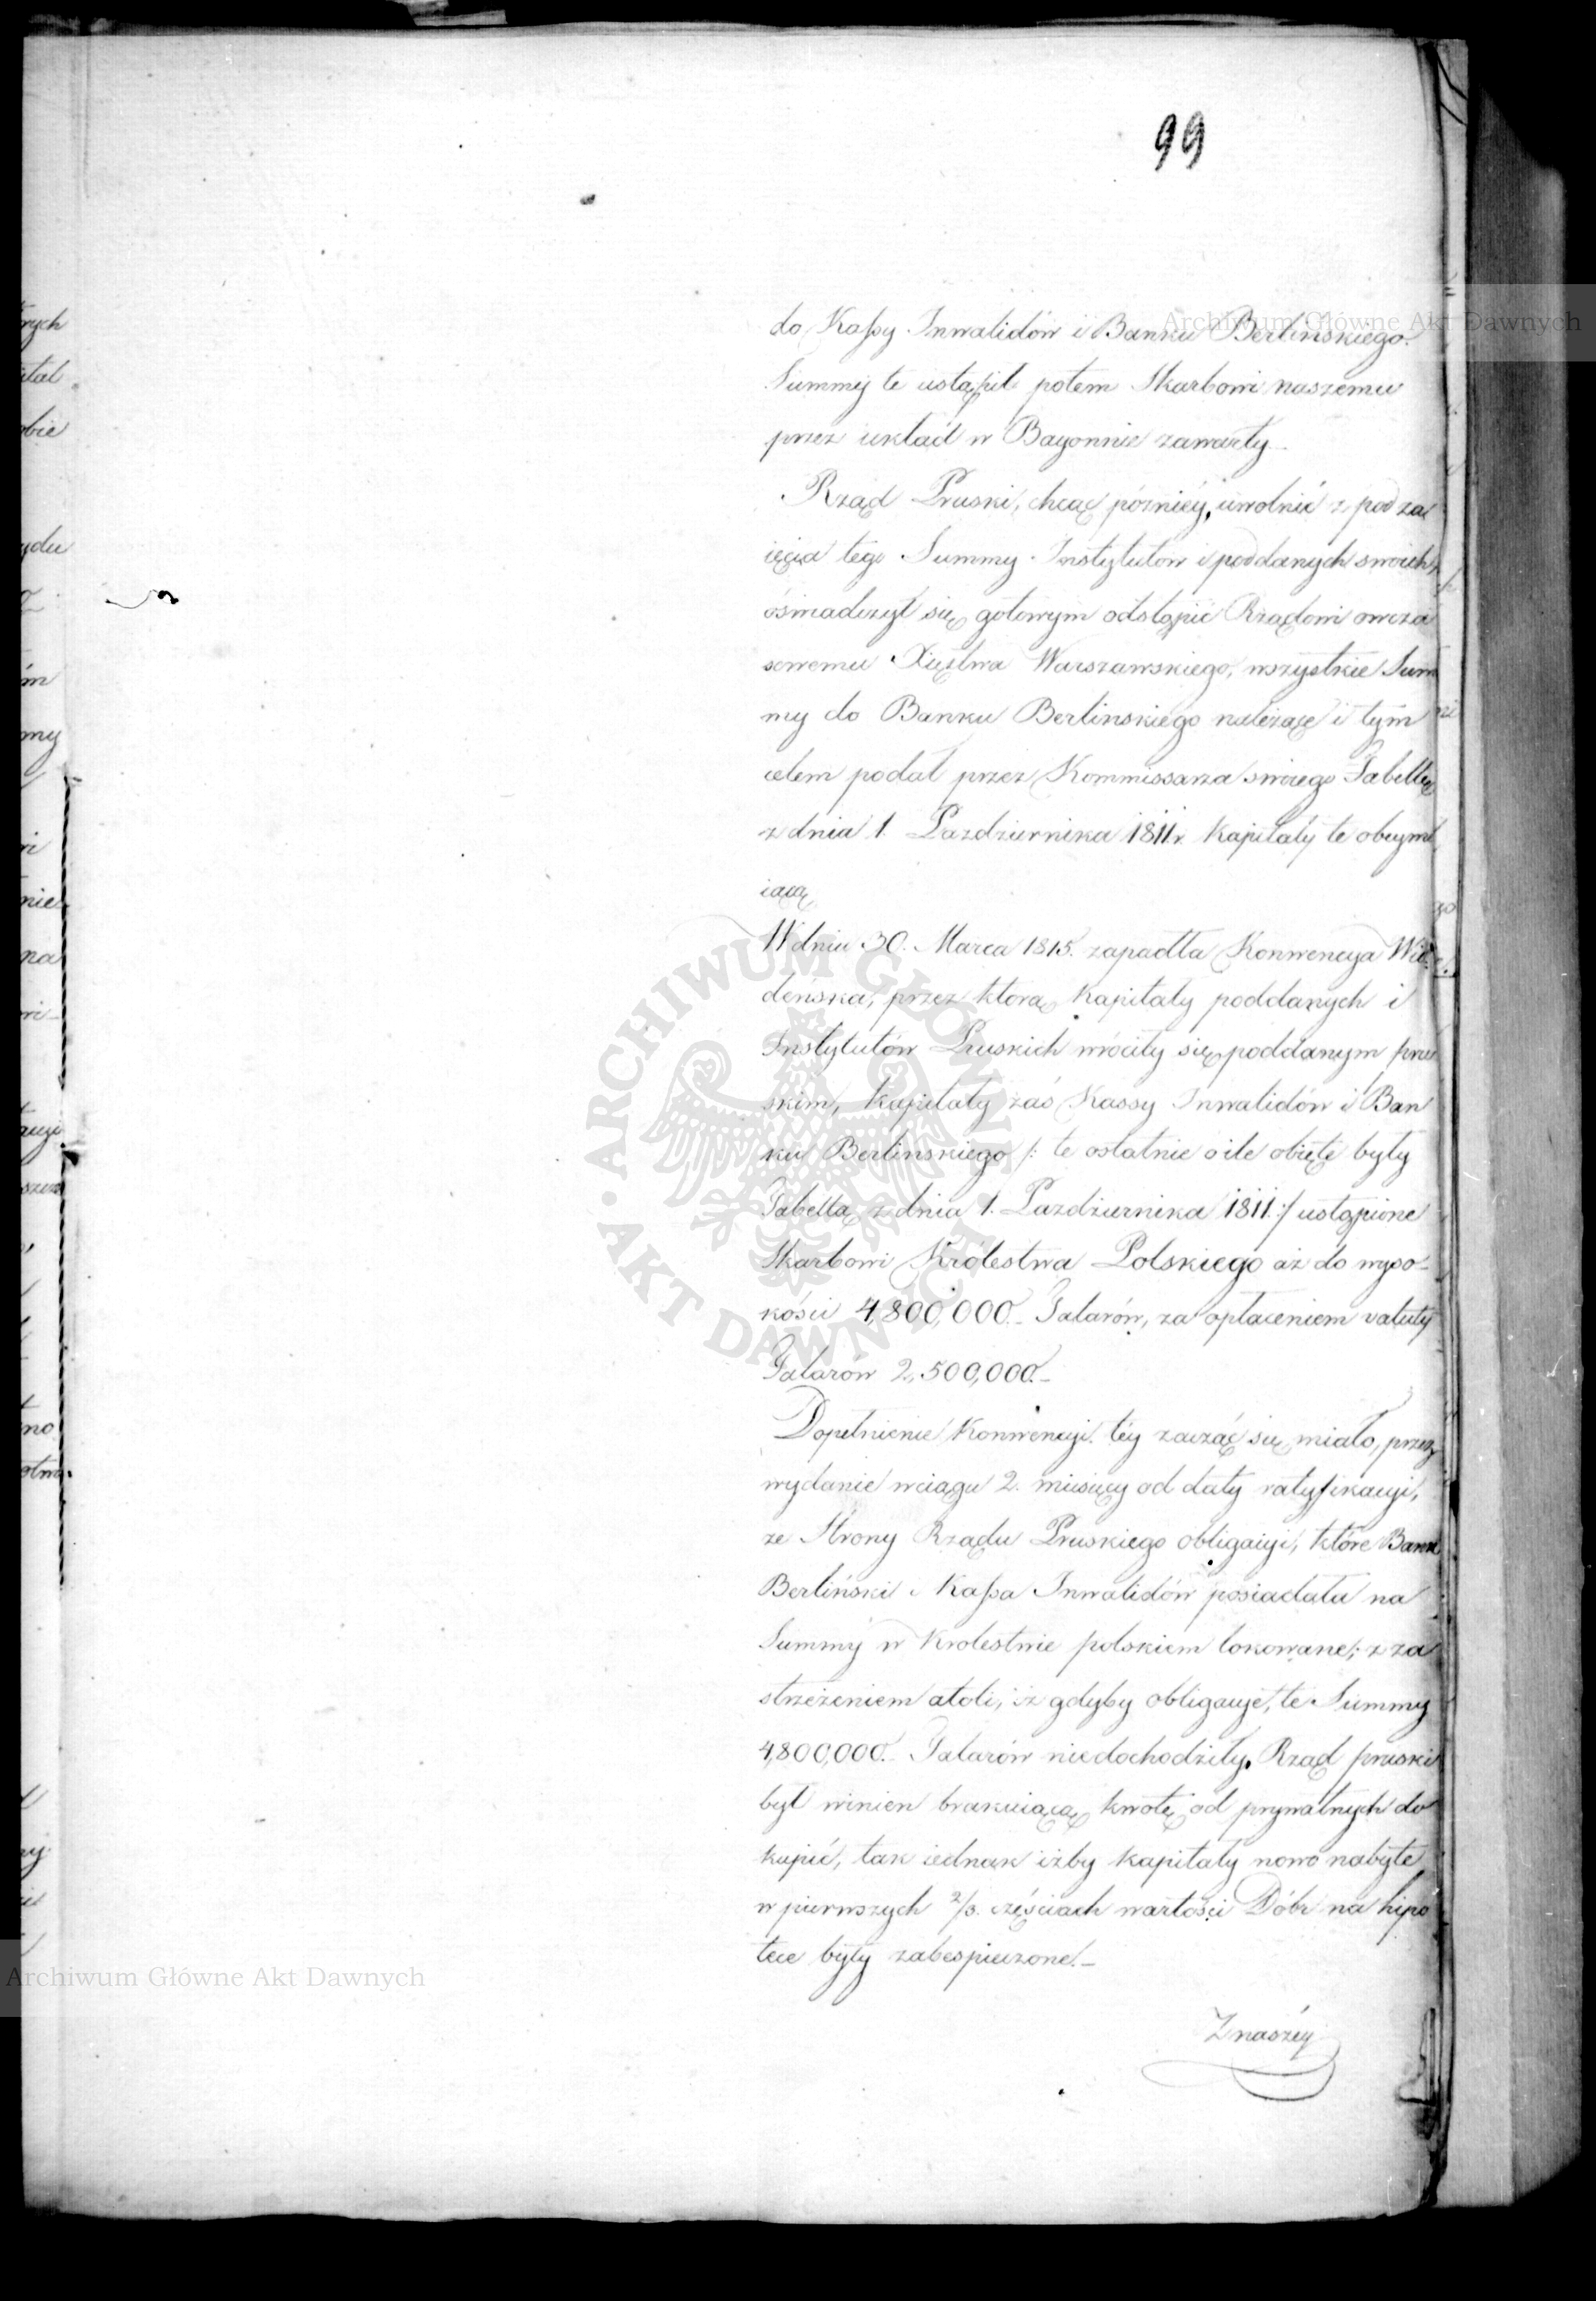 99
do Kaſsy Inwalidów i Banku Berlinskiego.
Summy te ustąpił potem Skarbowi naszemu
przez układ w Bayonnie zawarty.
Rząd Pruski, chcąc późniéy, uwolnić z pod za
ięcia tego Summy Instytutow i poddanych swoich,
oświadczył się gotowym odstąpić Rządowi owcza
sowemu Xięstwa Warszawskiego, wszystkie Sum
my do Banku Berlinskiego należące i tym
celem podał przez Kommissarza swoiego Tabellę
z dnia 1. Pazdziernika 1811.r. Kapitały te obeymu
iącą
W dniu 30. Marca 1815. zapadła Konwencya Wie
deńska, przez którą Kapitały poddanych i
Instytutów Pruskich wróciły się poddanym pru
skim, Kapitały zaś Kassy Inwalidów i Ban
ku Berlinskiego /: te ostatnie o ile obięte były
Tabellą z dnia 1. Pazdziernika 1811.:/ ustąpione
Skarbowi Królestwa Polskiego aż do wyso-
kości 4,800,000. Talarów, za opłaceniem valuty
Talarów 2,500,000.
Dopełnienie Konwencyi téy zacząć się miało, przez
wydanie wciągu 2. miesięcy od daty ratyfikacyi,
ze Strony Rządu Pruskiego obligacyi, które Bank
Berliński i Kaſsa Inwalidów posiadała na
Summy w Krolestwie polskiem lokowane; z za
strzeżeniem atoli, iż gdyby obligacye, te Summy
4,800,000. Talarów niedochodziły, Rząd pruski
był winien brakuiącą kwotę od prywatnych do
kupić, tak iednak iżby kapitały nowo nabyte
w pierwszych 2/3. częściach wartości Dóbr na hipo
tece były zabespieczone.
Z naszéy
Archiwum Główne Akt Dawnych
Archiwum Główne Akt Dawnych
ARCHIWUM GŁÓWNE AKT DAWNYCH